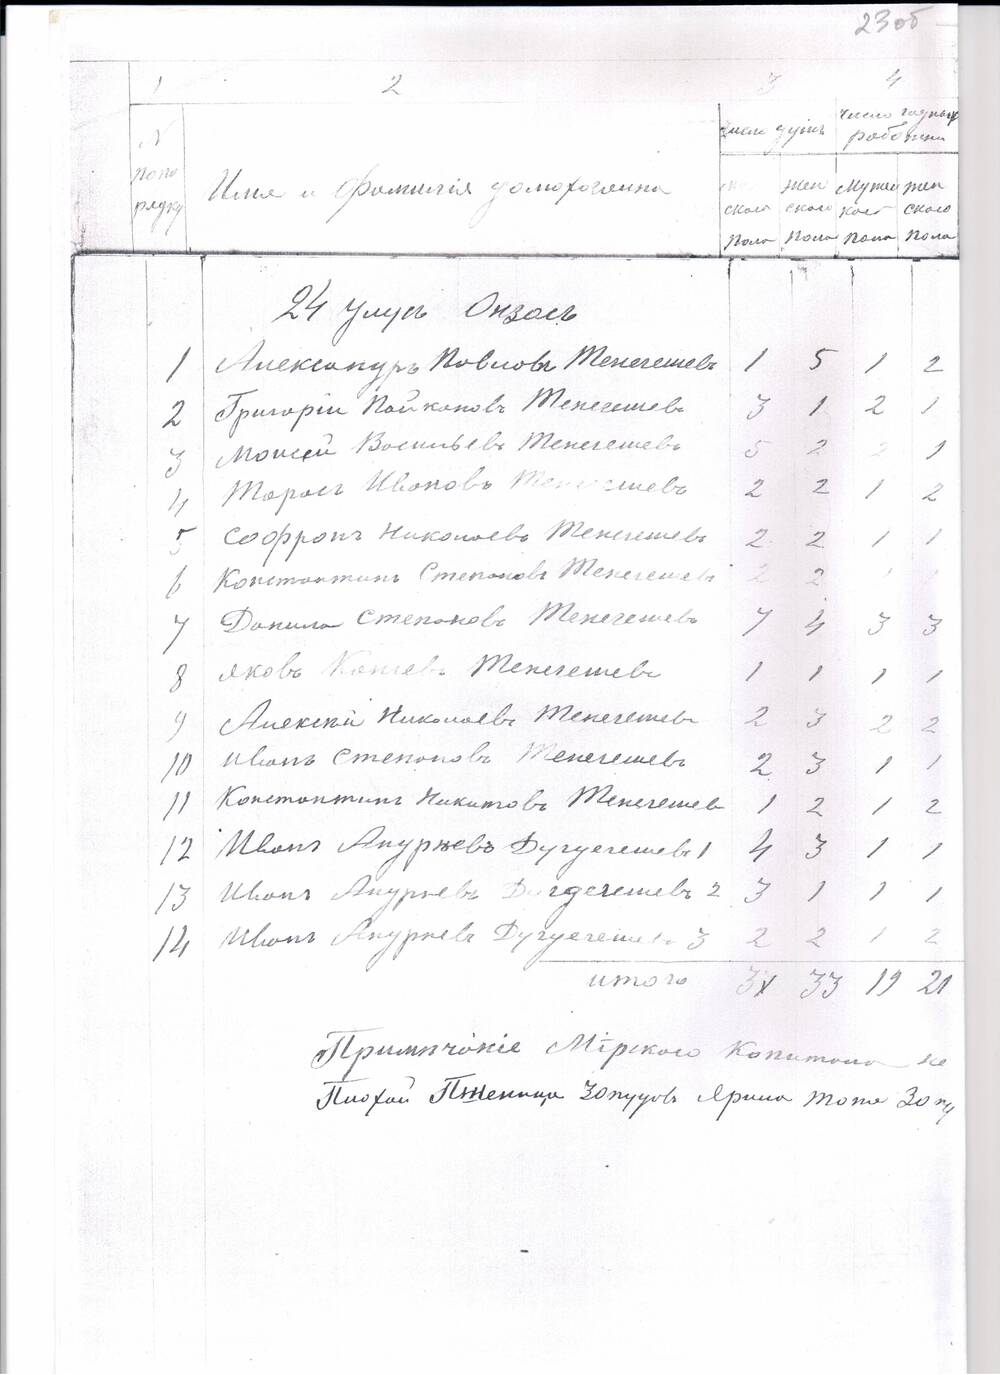 23об
1 2 3 4
№ по по рядку
Имя и Фамилія домохозяина
Число душъ
Число годныхъ работни
ского Пола
Жен ского Пола
Мужес кого Пола
Жен ского Пола
24 Улусъ Онзасъ
1 Александръ Павловъ Тенегешевъ 1 5 1 2
2 Григорій Пайкановъ Тенегешевъ 3 1 2 1
3 Моисей Васильевъ Тенегешевъ 5 2 2 1
4 Тарасъ Ивановъ Тенегешевъ 2 2 1 2
5 Софронъ Николаевъ Тенегешевъ 2 2 1 1
6 Константинъ Степановъ Тенегешевъ 2 2 1 1
7 Данила Степановъ Тенегешевъ 7 4 3 3
8 Яковъ Тенегешевъ 1 1 1 1
9 Алексей Николаевъ Тенегешевъ 2 3 2 2
10 Иванъ Степановъ Тенегешевъ 2 3 1 1
11 Константинъ Никитовъ Тенегешев 1 2 1 2
12 Иванъ Андреевъ Дугдегешевъ 1 4 3 1 1
13 Иванъ Андреевъ Дугдегешевъ 2 3 1 1 1
14 Иванъ Андреевъ Дугдегешевъ 3 2 2 1 2
итого 33 19 21
Примѣчаніе Мірского Капитала не
Плохой Пшеница Запудовъ Ярица тоже Запу